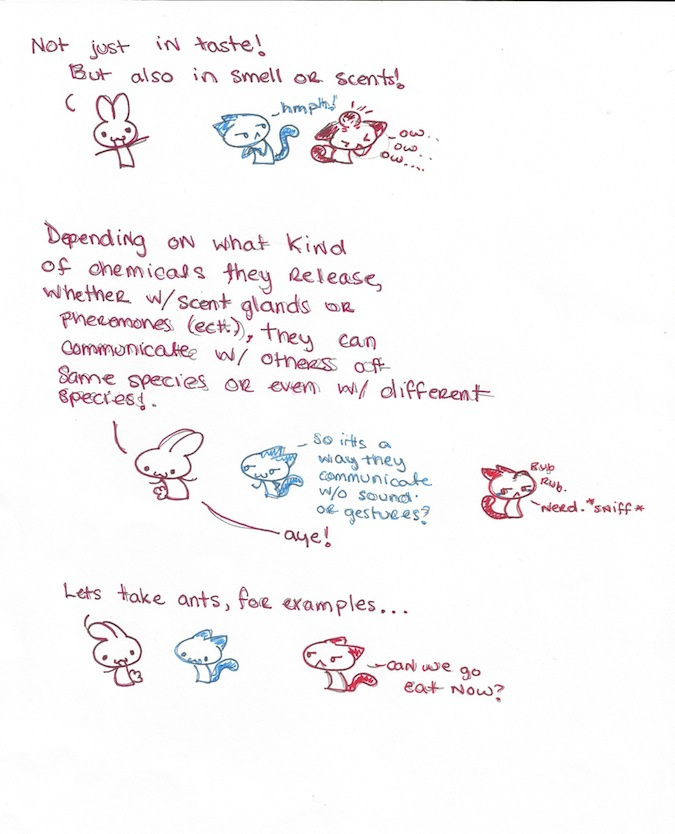 Not just in taste!
But also in smell or scents!
hmph!
ow..
ow..
ow....
Depending on what kind
of chemicals they release,
whether w/scent glands or
pheromones (ect.), they can
communicate w/ others of
same species or even w/ different
species!.
so it's a
way they
communicate
w/o sound
or gestures?
Rub
Rub.
Nerd. *sniff*
aye!
Lets take ants, for examples...
can we go
eat now?